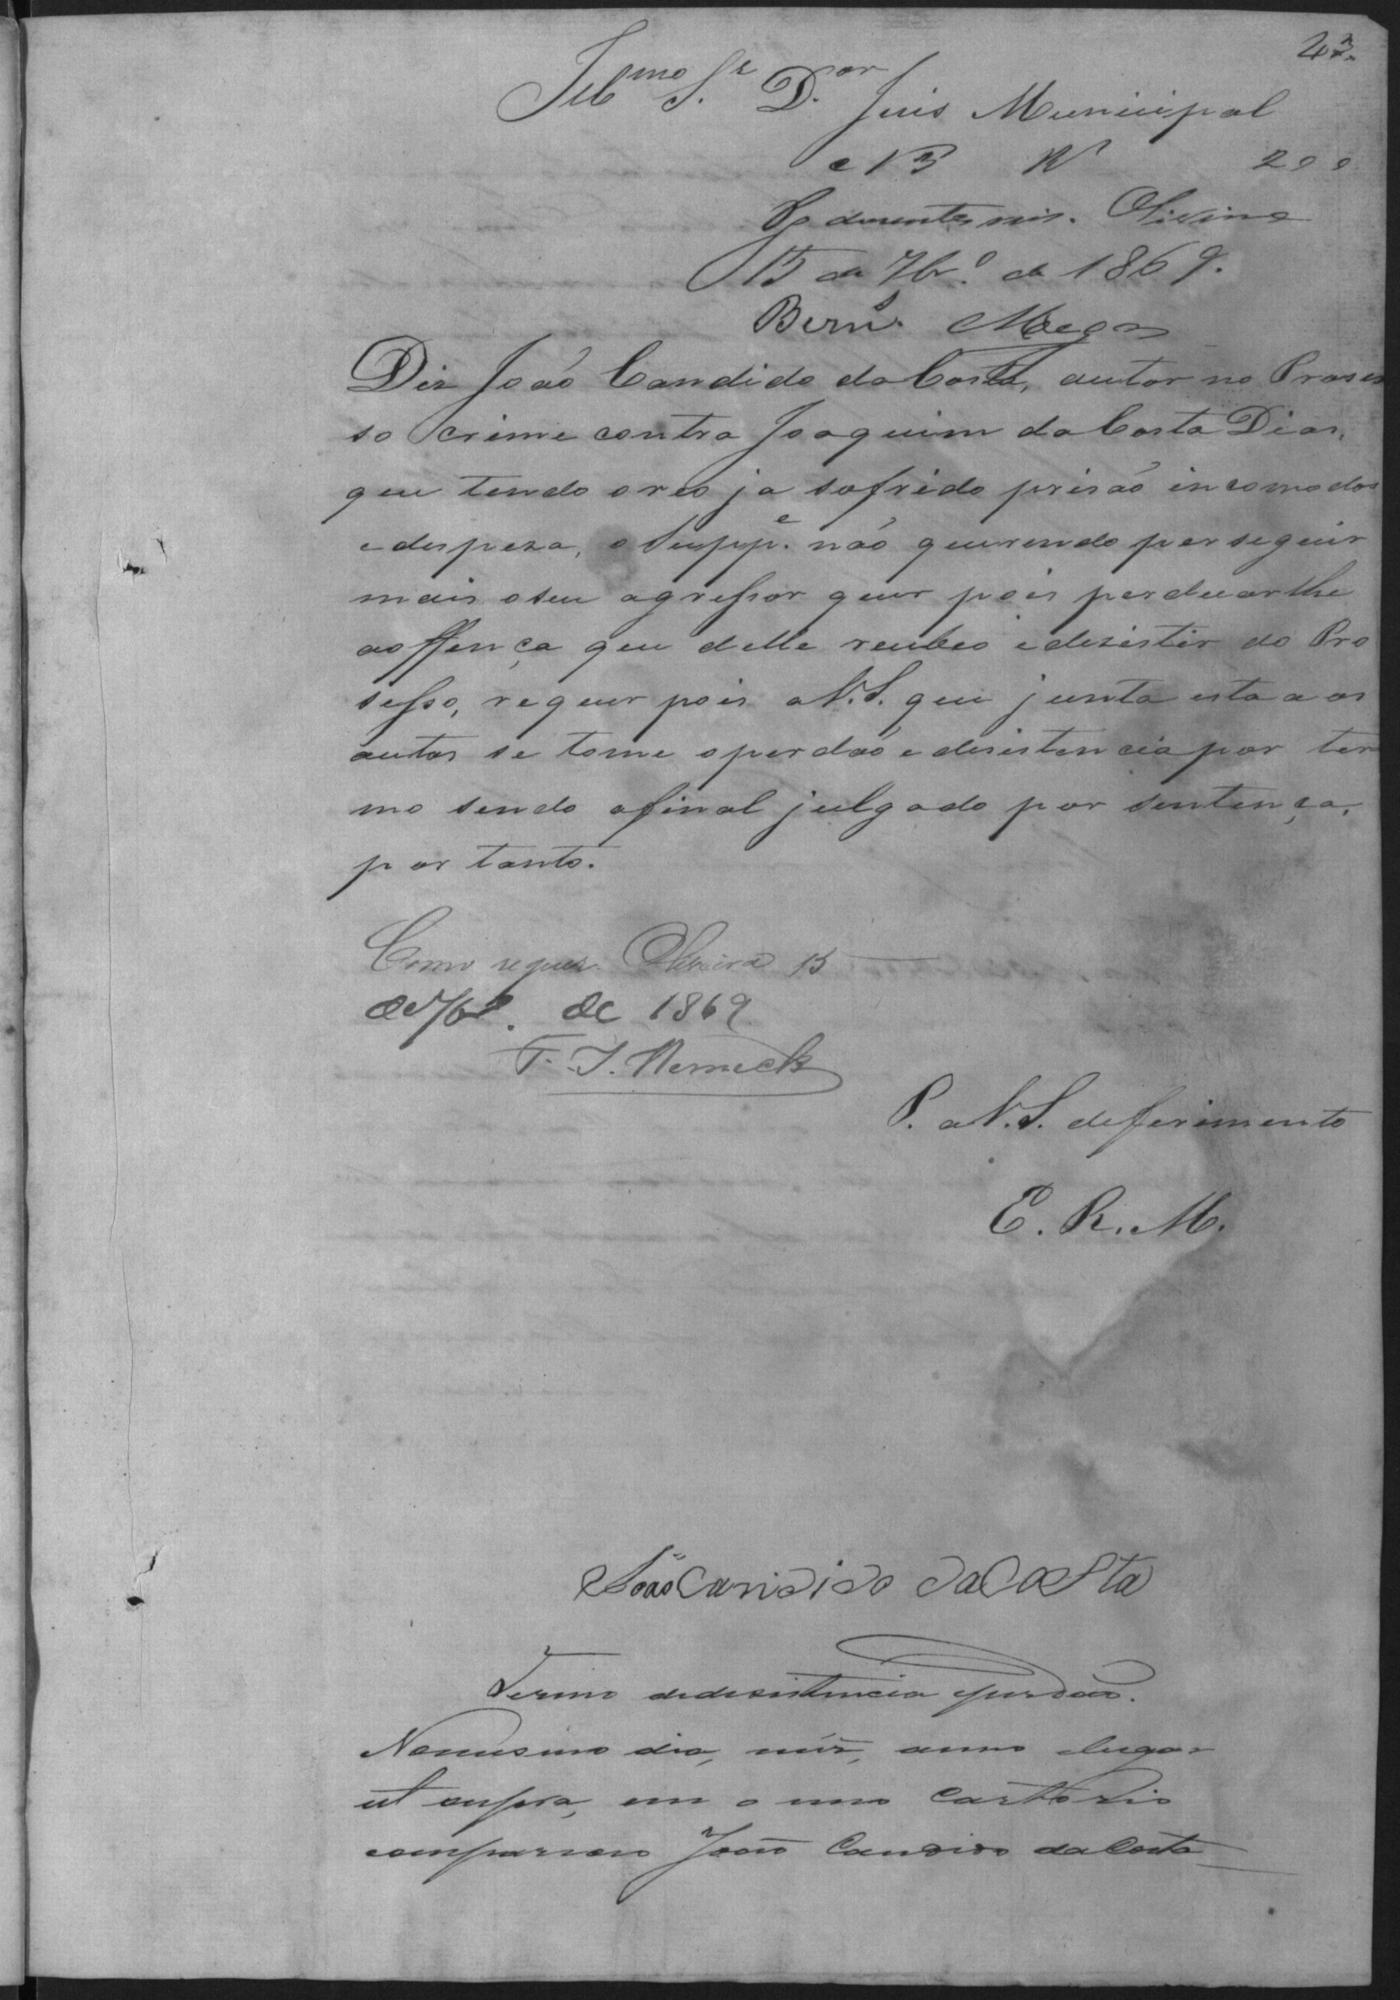 43
Ill.mo S.r D.or Juis Municipal
N 200
15 de 7br.o de 1869.
Diz João Candido da Costa, autor no Proses
so crime contra Joaquim da Costa Dias,
que tendo o reo ja sofrido prisão incomodos
e despeza, o Supp.e não querendo perseguir
mais o seu agressor quer pois perduar lhe
a offença que delle recebeo e desistir do Pro
sesso, requer pois a V.S. que junta esta a os
autos se tome o perdão e desistencia por ter
mo sendo afinal julgado por sentença,
por tanto.
Como requer. Oliveira 15
de 7br.o de 1869
F. J. Werneck
P. a V.S. deferimento
E. R. M.
João Candido da Costa
Termo de desistencia e perdão.
No mesmo dia, mês, anno e lugar
ut supra, em o meo Cartorio
compareceo João Candido da Costa